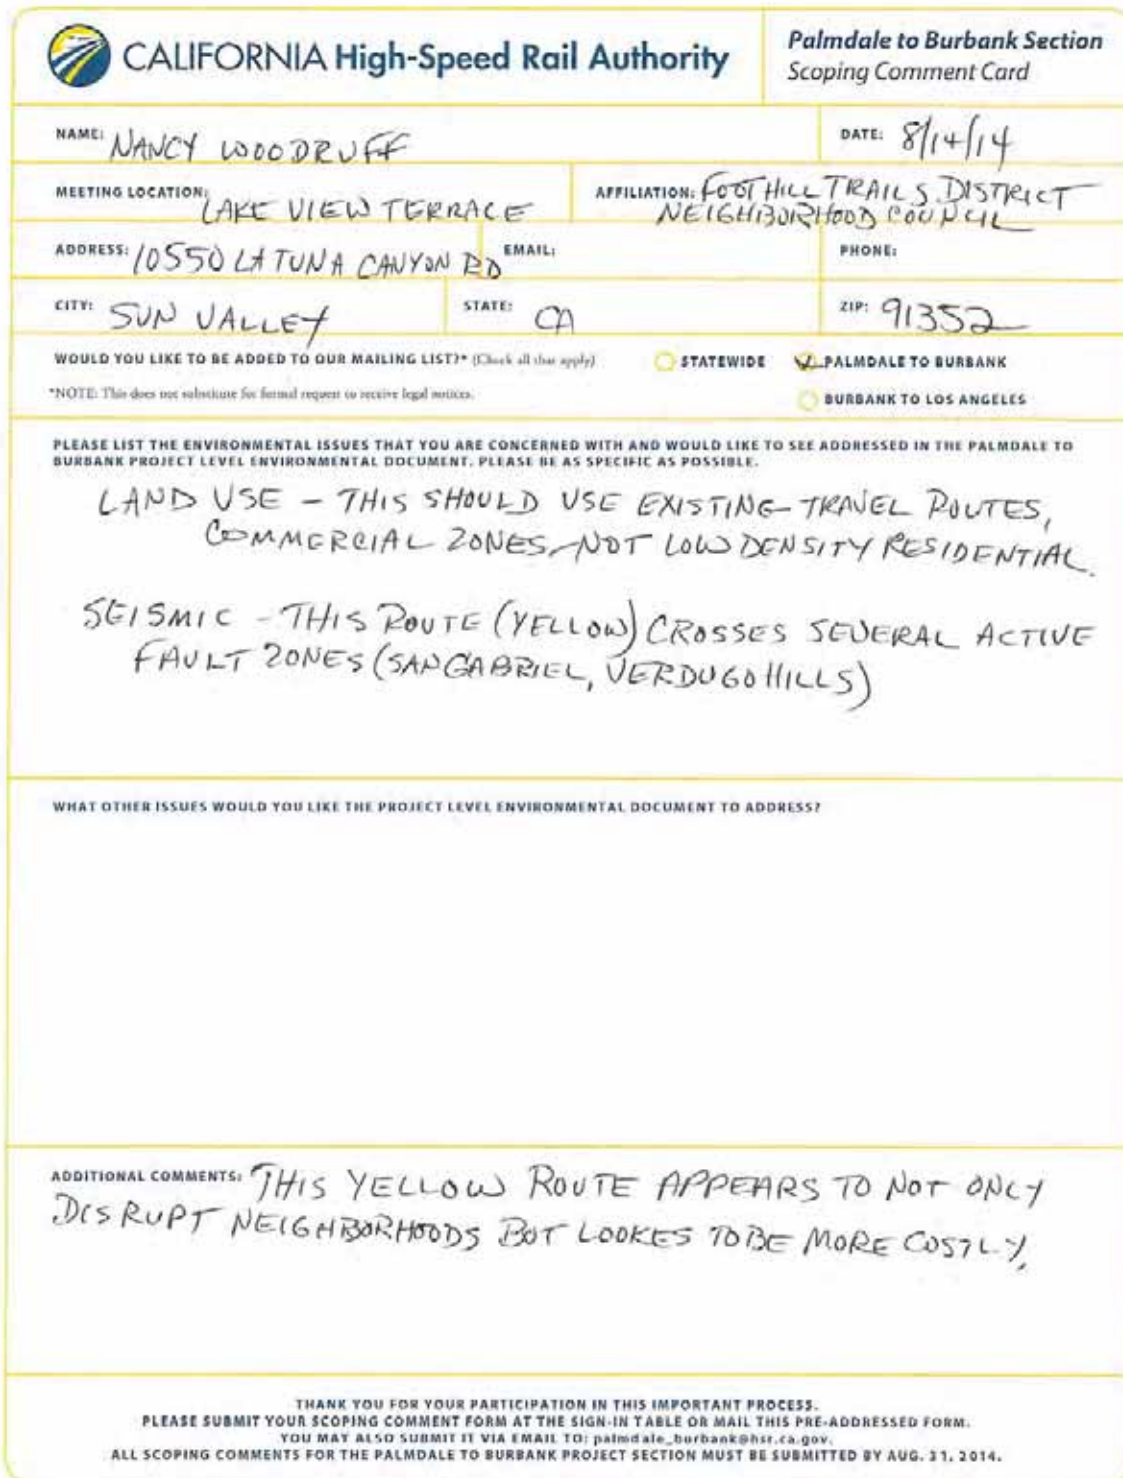 CALIFORNIA High-Speed Rail Authority
Palmdale to Burbank Section
Scoping Comment Card
NAME: NANCY WOODRUFF
DATE: 8/14/14
MEETING LOCATION: LAKE VIEW TERRACE
AFFILIATION: FOOTHILL TRAILS DISTRICT
NEIGHBORHOOD COUNCIL
ADDRESS: 10550 LA TUNA CANYON RD
EMAIL:
PHONE:
CITY: SUN VALLEY
STATE: CA
ZIP: 91352
WOULD YOU LIKE TO BE ADDED TO OUR MAILING LIST?* (Check all that apply)
STATEWIDE
PALMDALE TO BURBANK
*NOTE: This does not substitute for formal request to receive legal notices.
BURBANK TO LOS ANGELES
PLEASE LIST THE ENVIRONMENTAL ISSUES THAT YOU ARE CONCERNED WITH AND WOULD LIKE TO SEE ADDRESSED IN THE PALMDALE TO
BURBANK PROJECT LEVEL ENVIRONMENTAL DOCUMENT. PLEASE BE AS SPECIFIC AS POSSIBLE.
LAND USE - THIS SHOULD USE EXISTING TRAVEL ROUTES,
COMMERCIAL ZONES, NOT LOW DENSITY RESIDENTIAL.
SEISMIC - THIS ROUTE (YELLOW) CROSSES SEVERAL ACTIVE
FAULT ZONES (SAN GABRIEL, VERDUGO HILLS)
WHAT OTHER ISSUES WOULD YOU LIKE THE PROJECT LEVEL ENVIRONMENTAL DOCUMENT TO ADDRESS?
ADDITIONAL COMMENTS: THIS YELLOW ROUTE APPEARS TO NOT ONLY
DISRUPT NEIGHBORHOODS BUT LOOKES TO BE MORE COSTLY.
THANK YOU FOR YOUR PARTICIPATION IN THIS IMPORTANT PROCESS.
PLEASE SUBMIT YOUR SCOPING COMMENT FORM AT THE SIGN-IN TABLE OR MAIL THIS PRE-ADDRESSED FORM.
YOU MAY ALSO SUBMIT IT VIA EMAIL TO: palmdale_burbank@hsr.ca.gov.
ALL SCOPING COMMENTS FOR THE PALMDALE TO BURBANK PROJECT SECTION MUST BE SUBMITTED BY AUG. 31, 2014.